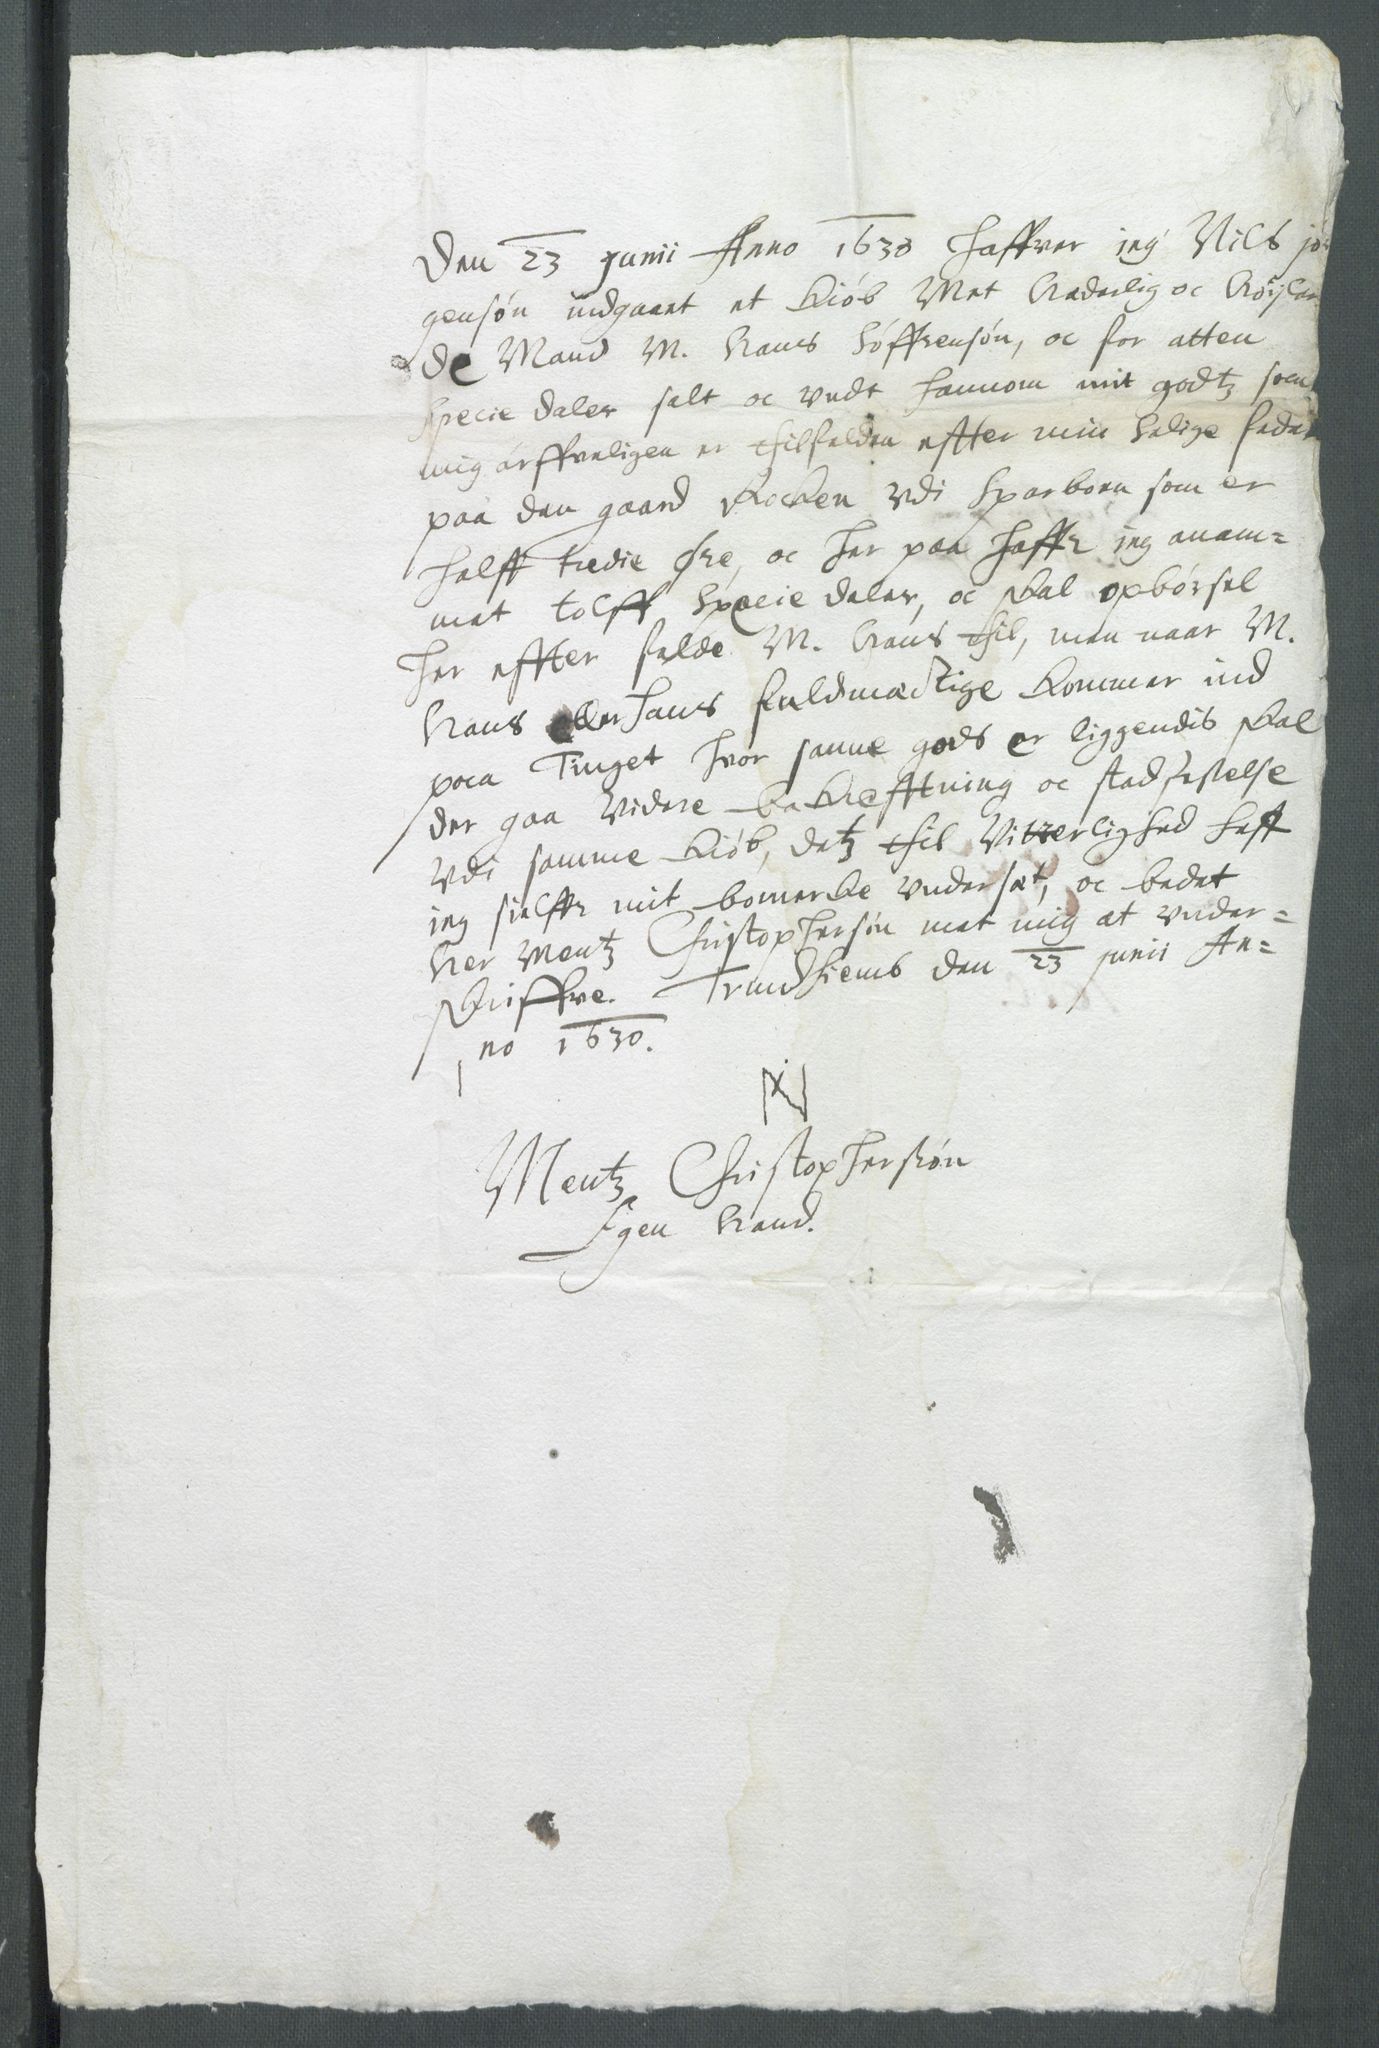 Den 23 Junii Anno 1630 haffver ieg Nils jör
gensön indgaaet et kiöb Met hæderlig oc höylær
de Mand M. Hans Söffrensön, oc for atten
specie daler salt oc undt hannom mit godtz som
mig arffveligen er thilfalden effter min Salige fader
paa den gaard Kocken udi Sparboen som er
halff tredie Öre, oc her paa haffr ieg anam=
met tolff Specie daler, oc skal opbörsel
her effter falde M. Hans thil, men naar M.
Hans eller hans fuldmæctige kommer ind
paa Tinget hvor samme gods er liggendis skal
der gaa Videre bekræfftning oc stadfestelse
Udi samme kiöb, detz thil Vitterlighed haff
ieg sielffr mit bomerke undersæt, oc bedet
Her Mentz Christophersön met mig at under=
skriffve. Trundhiems den 23 junii An=
no 1630.
N
Mentz Christopherssön
Egen Haand.